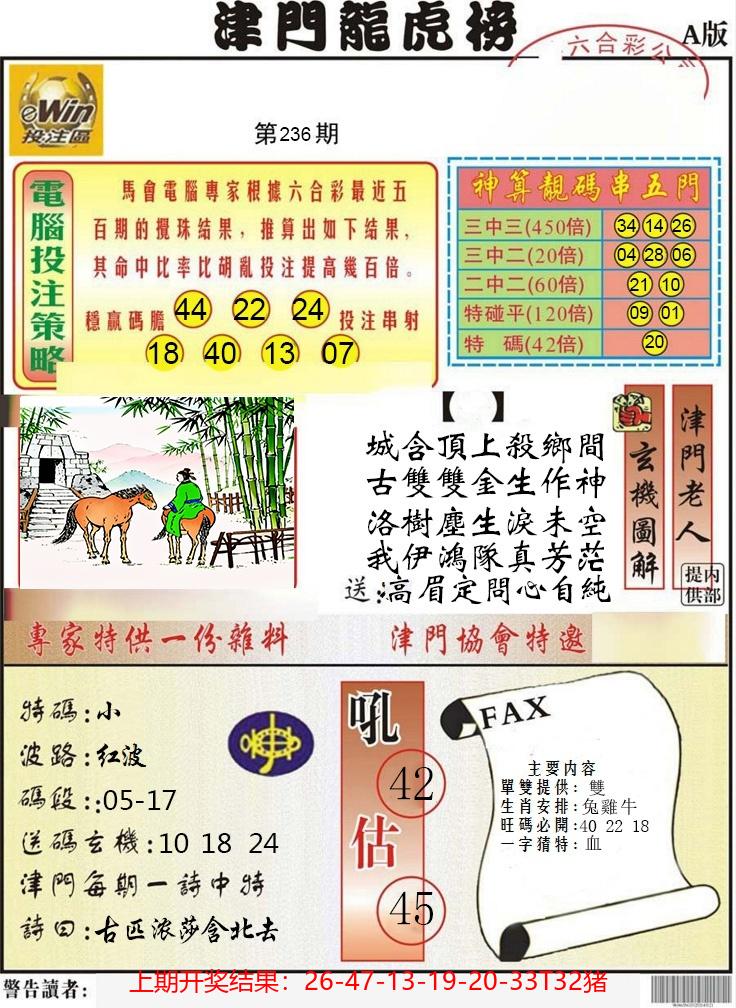 津門龍虎榜
A版
六合彩公
eWin
投注區
第236期
電腦投注策略
馬會電腦專家根據六合彩最近五
百期的攪珠结果，推算出如下结果，
其命中比率比胡亂投注提高幾百倍。
穩贏碼膽 44 22 24 投注串射
18 40 13 07
神算靚码串五門
三中三(450倍) 34 14 26
三中二(20倍) 04 28 06
二中二(60倍) 21 10
特碰平(120倍) 09 01
特 碼(42倍) 20
【 】
城含頂上殺鄉間
古雙雙金生作神
洛樹塵生淚未空
我伊鴻隊真芳茫
送:高眉定問心自純
玄機圖解
津門老人
内部提供
專家特供一份雜料
津門協會特邀
特碼:小
波路:红波
碼段::05-17
送碼玄機:10 18 24
津門每期一詩中特
詩曰:古匹浓莎含北去
吼
42
估
45
FAX
主要内容
單雙提供：雙
生肖安排:兔雞牛
旺码必開:40 22 18
一字猜特：血
警告讀者：
上期开奖结果：26-47-13-19-20-33T32猪